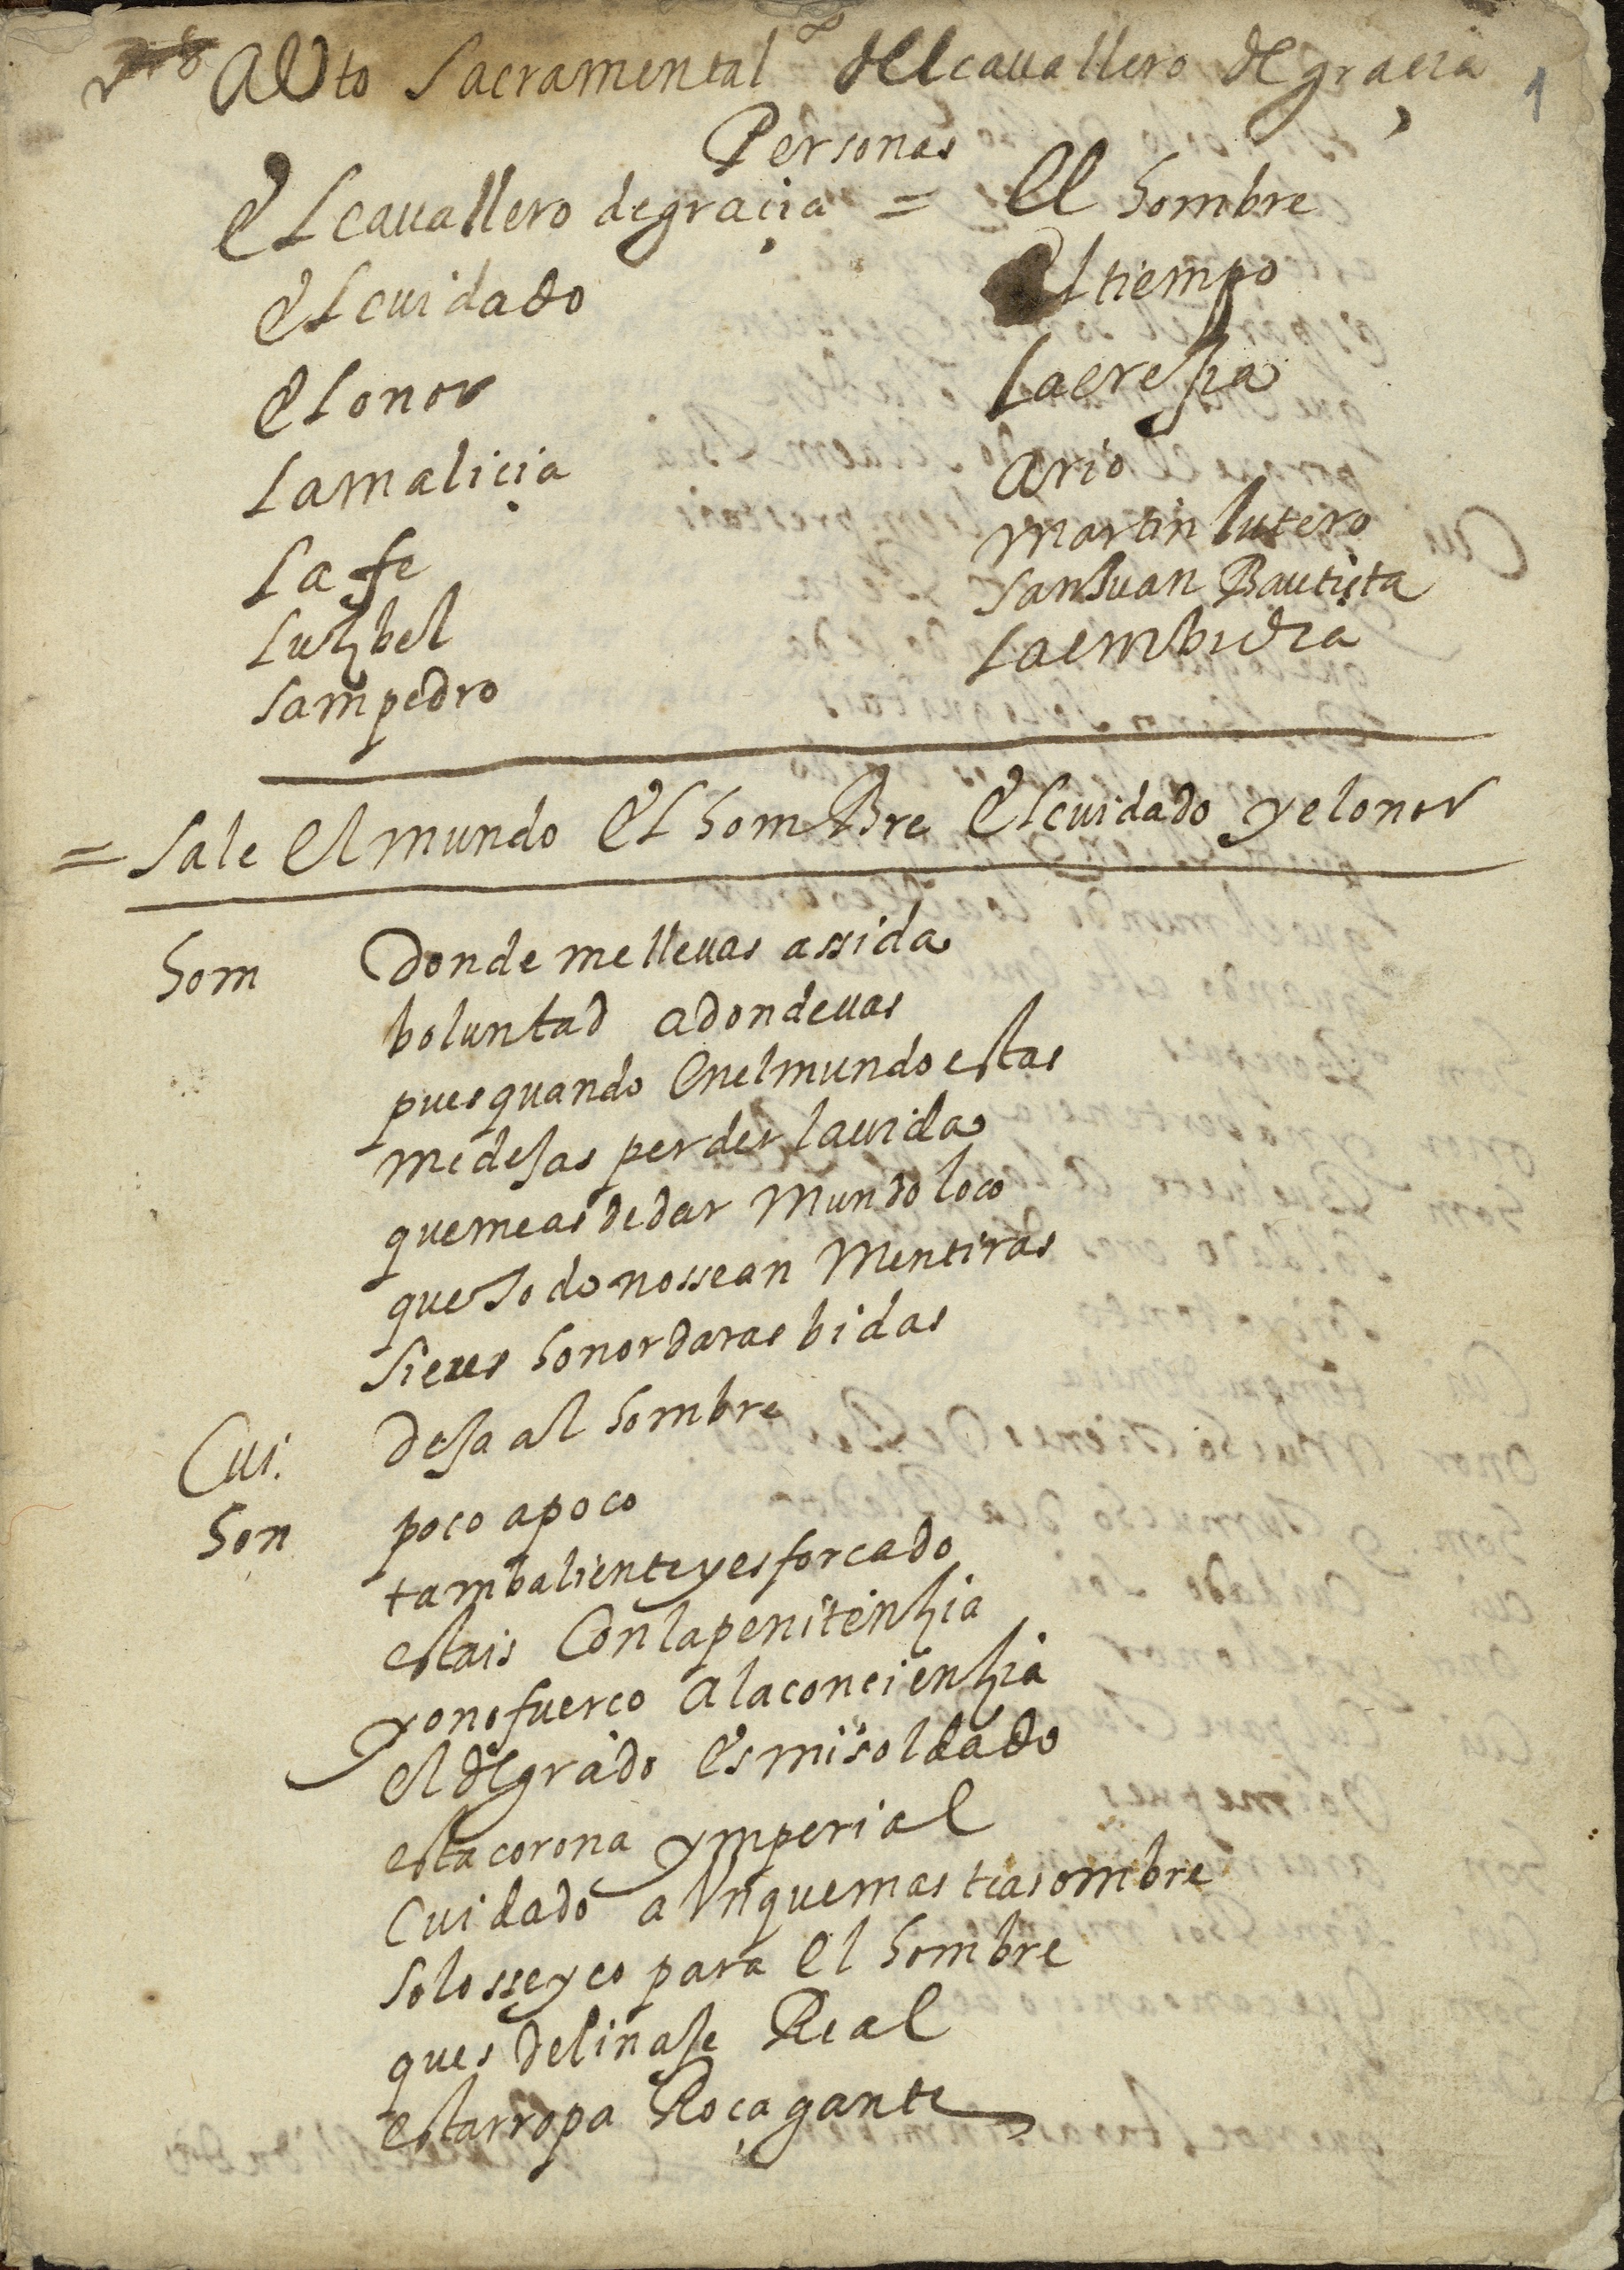 Auto Sacramental del cauallero de graçia 1
Personas
El cauallero de graçia = El hombre
El cuidado El tiempo
El onor La erejia
La maliçia Ario
La fe martin lutero
Luzbel San Juan Bautista
Sampedro La embidia
= Sale El mundo El hombre El cuidado y el onor
hom Donde me lleuas assida
boluntad adonde uas
pues quando En el mundo estas
me dejas perder la uida
que me as de dar Mundo loco
que todo no ssean Mentiras
si eres honor daras bidas
Cui. Deja al hombre
hon poco a poco
tam baliente y esforcado
estais Con la penitenzia
yo no fuerco a la concienzia
el de grado Es mi soldado
esta corona ymperial
Cuidado aunque mas te asombre
solo sseyco para El hombre
ques de linaje Real
estarropa Roçagante